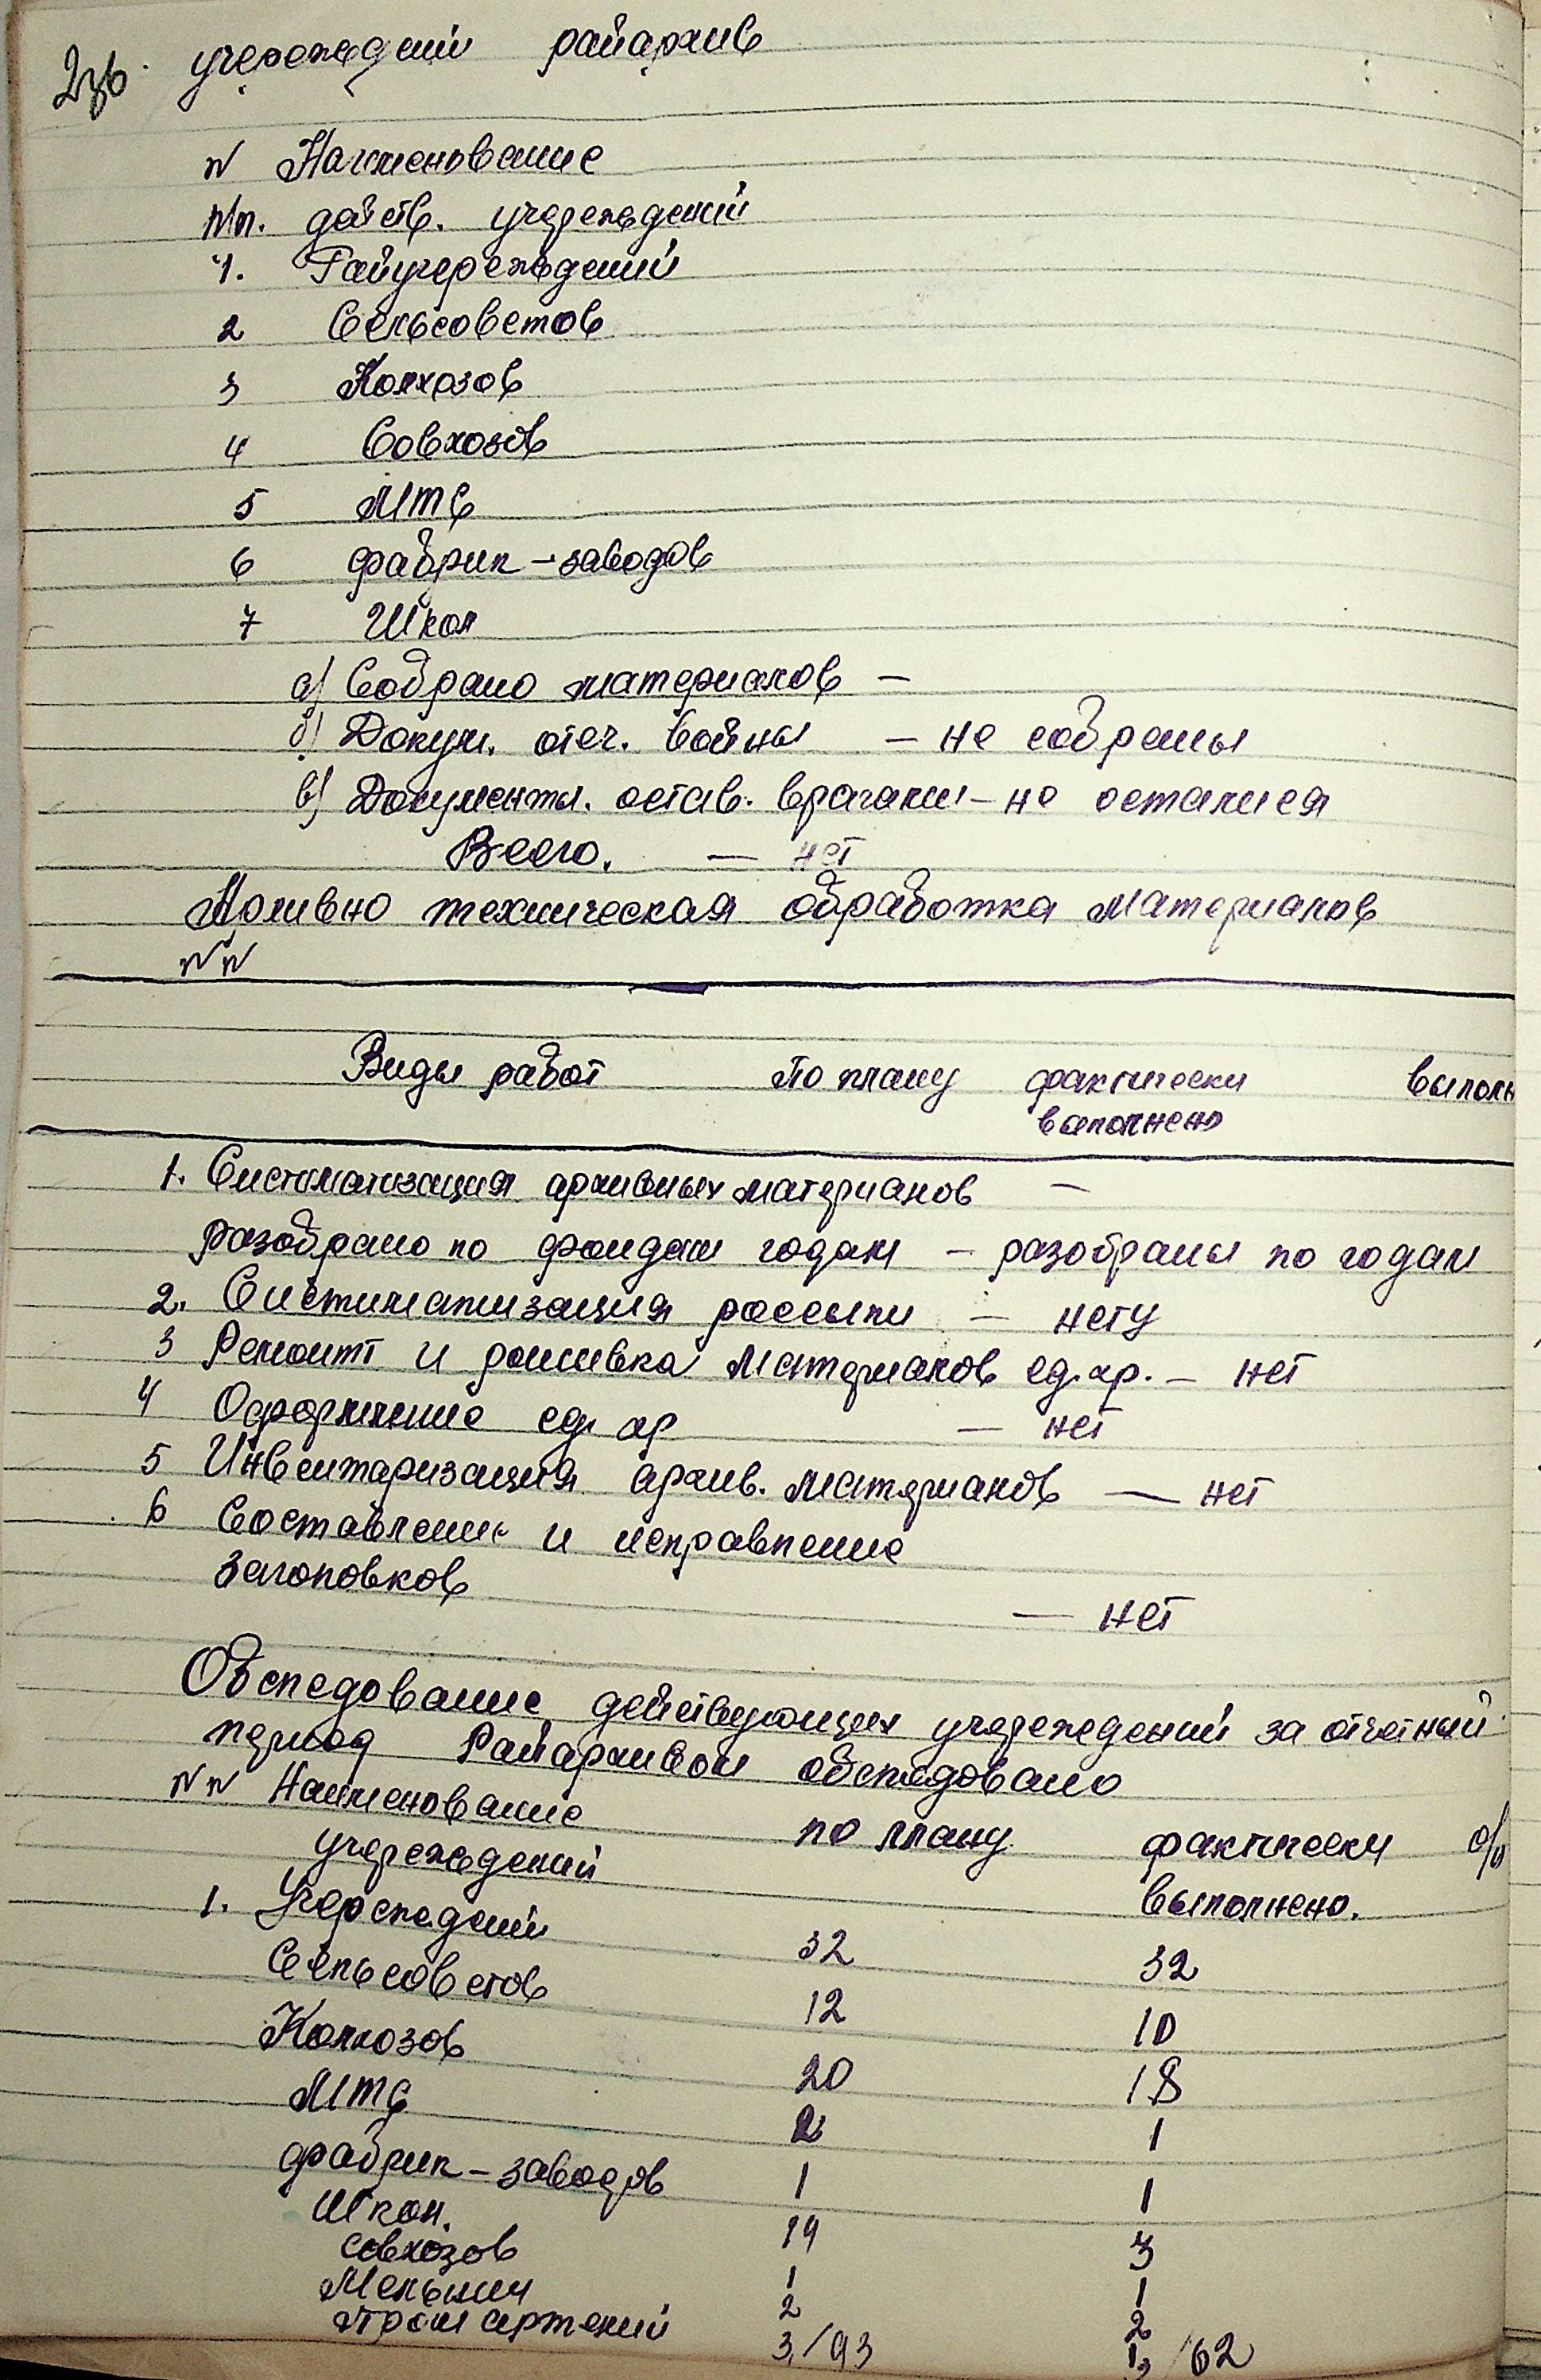 23б. учереждений райархив
N Наименование
п/п. дейтв. учереждений
1. Райучереждений
2 Сельсоветов
3 Колхозов
4 Совхозов
5 МТС
6 фабрик – заводов
7 Школ
а) Собрано материалов —
б) Докум. отеч. войны — не собраны
в) Документы. остав. врагами – не остались
Всего. — нет
Архивно техническая обработка материалов
NN
Виды работ По плану фактически выполн
выполнено
1. Систематизация архивных материалов —
Разобрано по фондам годам — разобраны по годам
2. Систиматизация россыпи — нету
3 Ремонт и подшивка материалов ед.хр. – нет
4 Оформление ед. хр — нет
5 Инвентаризация архив. материалов — нет
6 Составление и исправление
заголовков — нет
Обследование действующих учереждений за отчетный
период Райархивом обследовано
NN Наименование по плану фактически %
учереждений выполнено.
1. Учереждений 32 32
Сельсоветов 12 10
Колхозов 20 18
МТС 2 1
фабрик – заводов 1 1
Школ. 19 3
совхозов 1 1
Мельниц 2 2
Пром артелий 3/93 /62